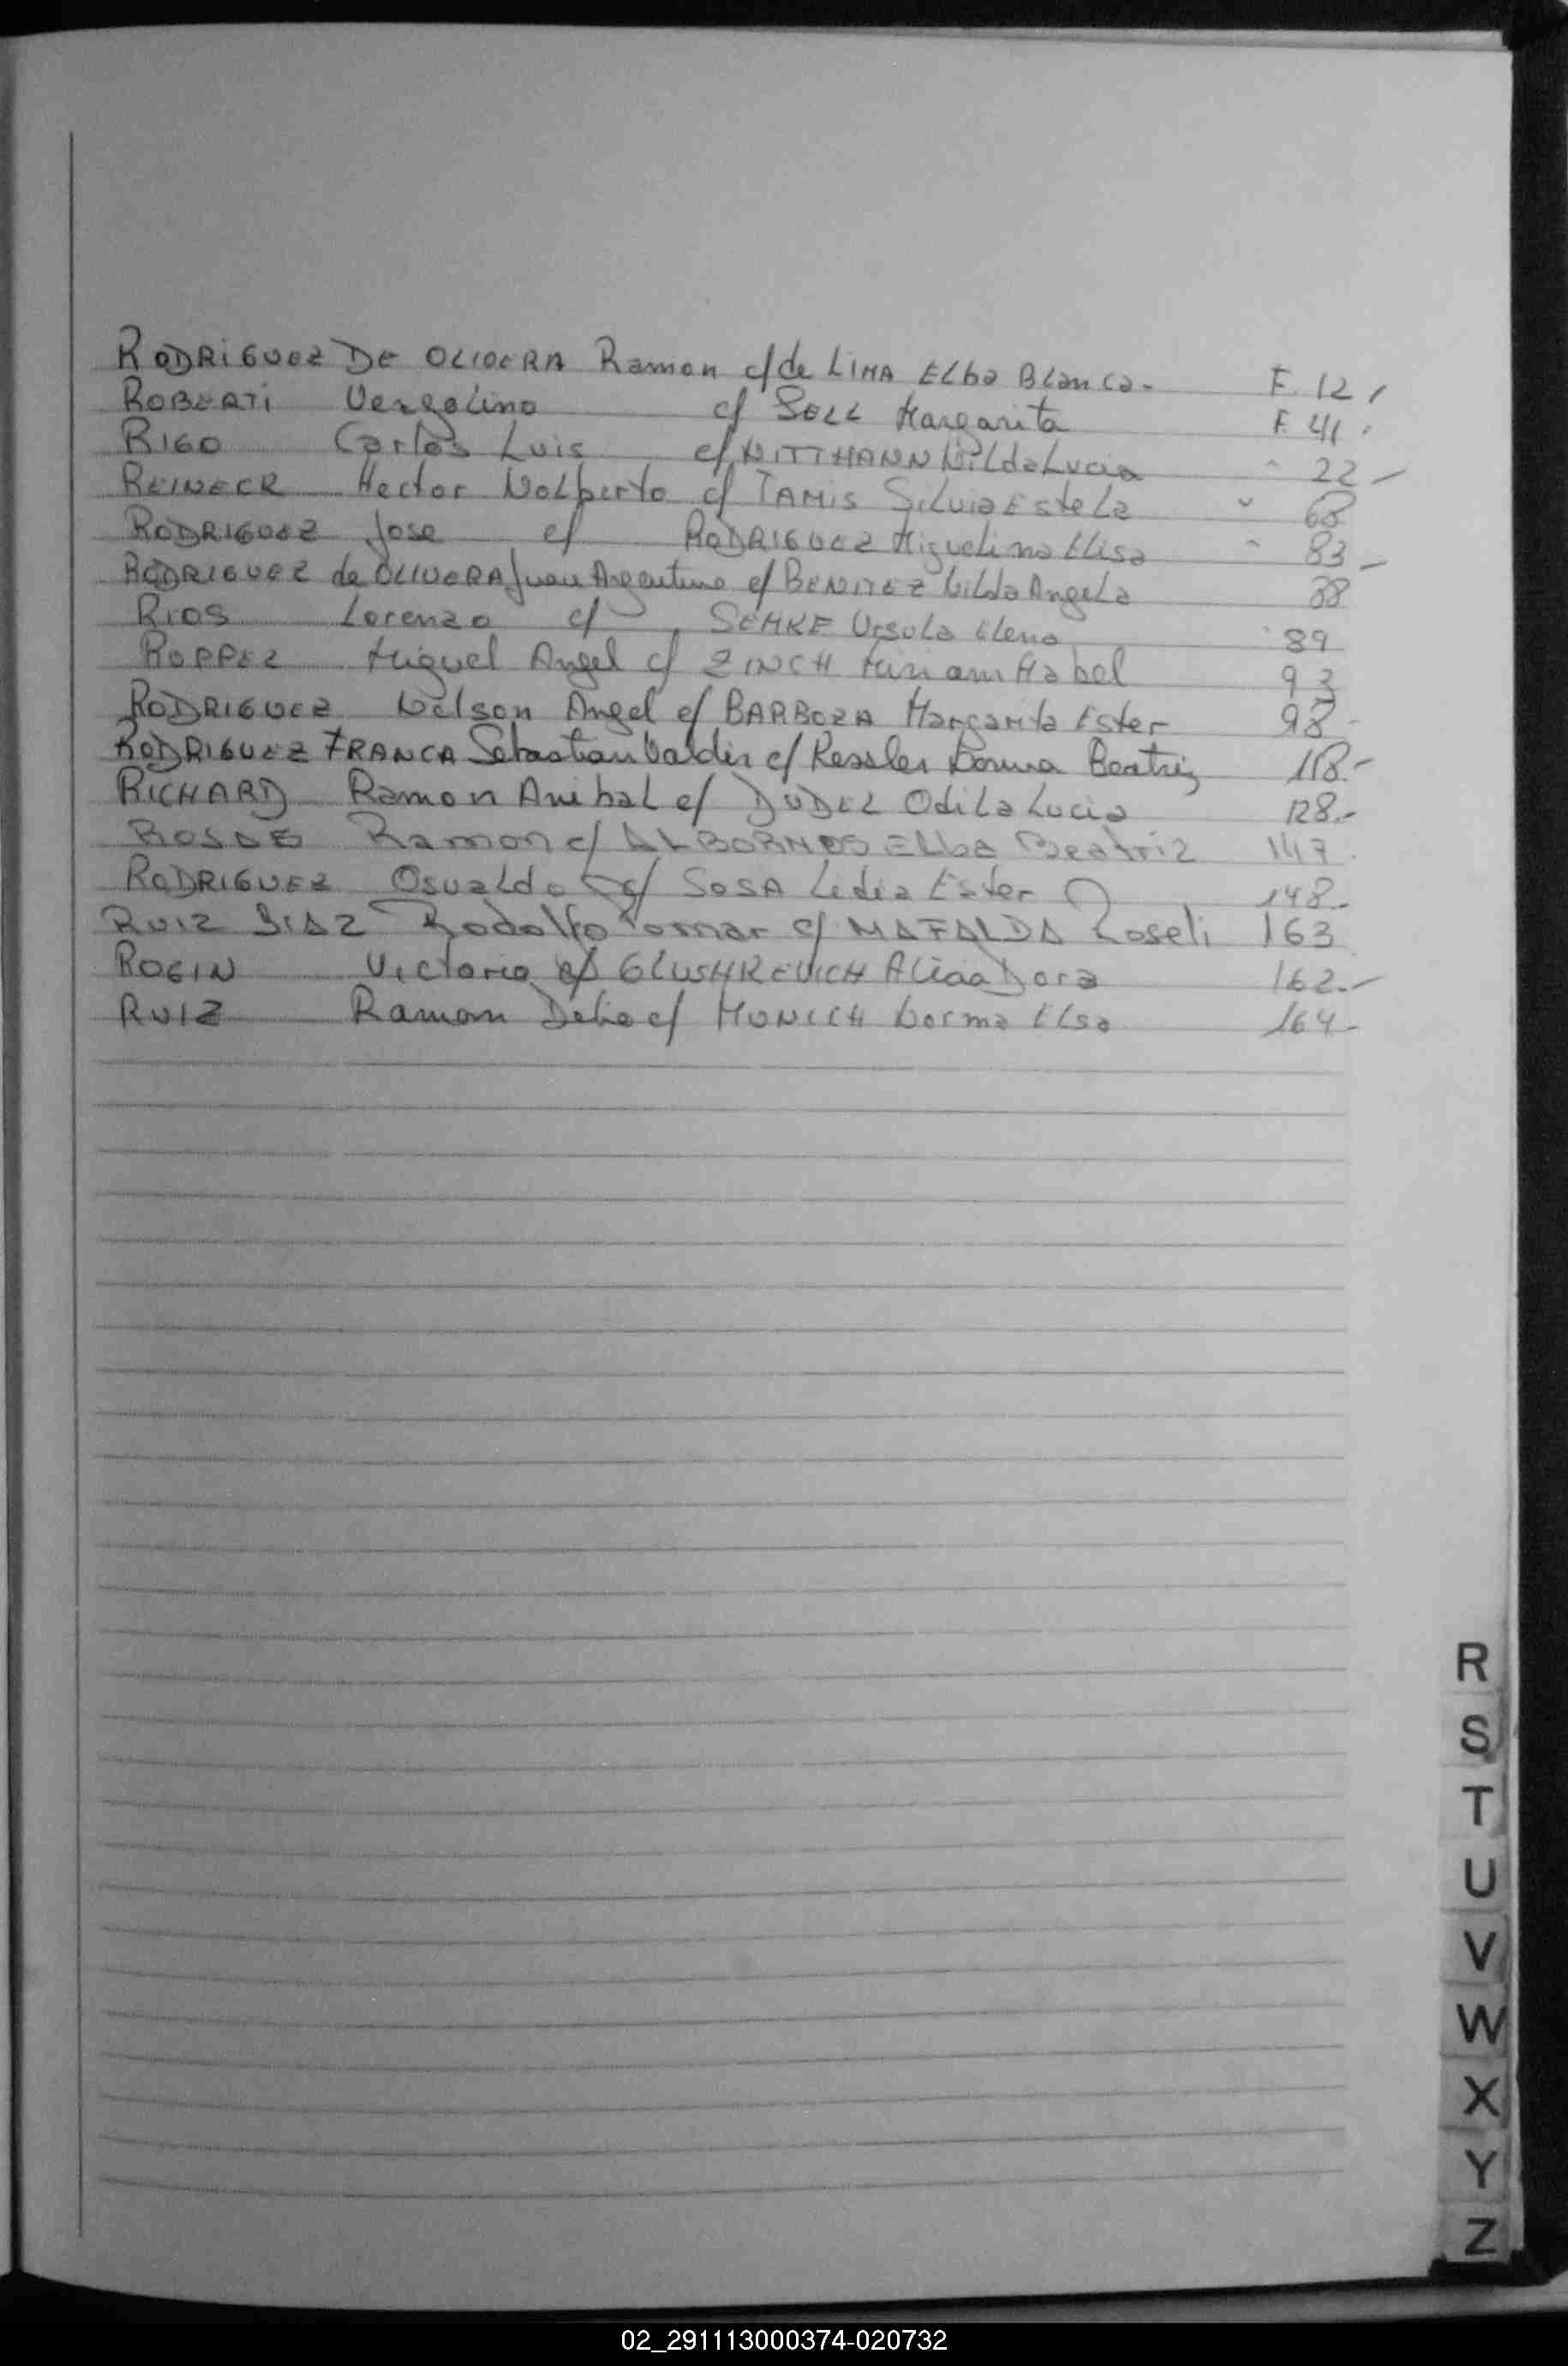 RODRIGUEZ DE OLIVERA Ramon c/de LIMA Elba Blanca- F. 12,
ROBERTI Vergelino c/ SELL Margarita F. 41.
RIGO Carlos Luis c/ WITTMANN Nilda Lucia " 22 -
REINECK Hector Nolberto c/ TAMIS Silvia Estela " 68
RODRIGUEZ Jose c/ RODRIGUEZ Miguelina Elisa " 83 -
RODRIGUEZ de OLIVERA Juan Argentino c/ BENITEZ Nilda Angela 88
RIOS Lorenzo c/ SEMKE Ursula Elena 89
ROPPEL Miguel Angel c/ ZINCH Miriam Mabel 93
RODRIGUEZ Nelson Angel c/ BARBOZA Margarita Ester 98 -
RODRIGUEZ FRANCA Sebastian Valdir c/ Kessler Norma Beatriz 118.-
RICHARD Ramon Anibal c/ DUDEL Odila Lucia 128.-
Ramon c/ ALBORNOS Elba Beatriz 147.
RODRIGUEZ Osvaldo c/ SOSA Lidia Ester 148.-
RUIZ DIAZ Rodolfo omar c/ MAFALDA Roseli 163
ROGIN Victorio c/ GLUSHKEVICH Alicia Dora 162.-
RUIZ Ramon Delio c/ MUNICH Norma Elsa 164-
R
S
T
U
V
W
X
Y
Z
02_291113000374-020732